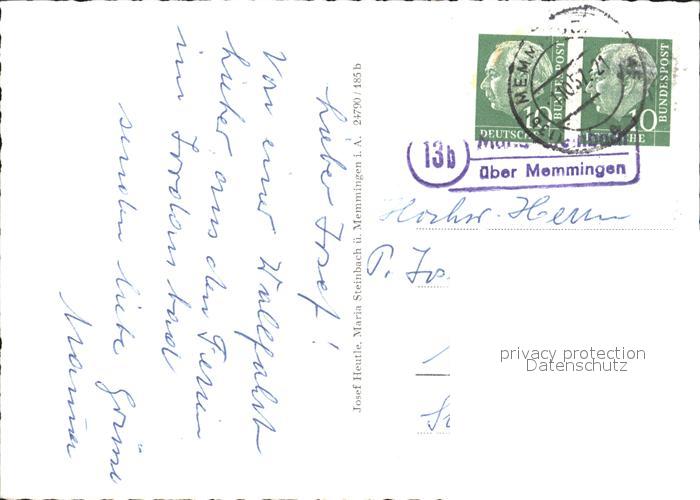 Lieber Josef!
Von einer Wallfahrt
hieher aus den Ferien
im Jordanbad
senden liebe Grüße
Mama
Josef Heutle, Maria Steinbach ü. Memmingen i. A. 24790/185 b
DEUTSCHE
BUNDESPOST
10
BUNDESPOST
MEMM
13b
Maria Steinbach
über Memmingen
Hochw. Herrn
P. Jos.
privacy protection
Datenschutz